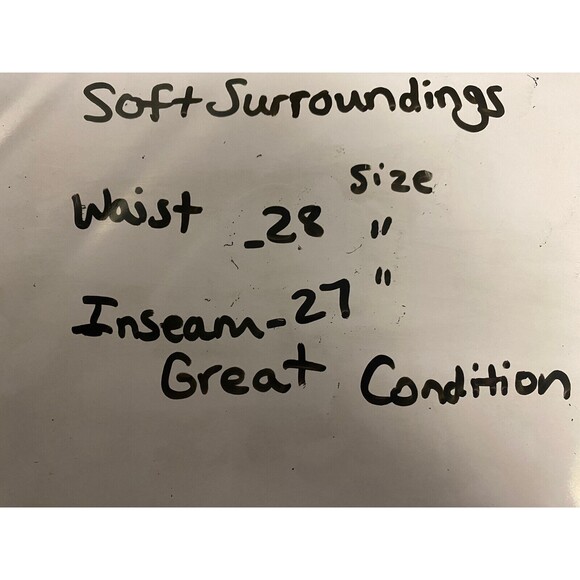 Soft Surroundings
size
Waist -28 "
Inseam-27 "
Great Condition